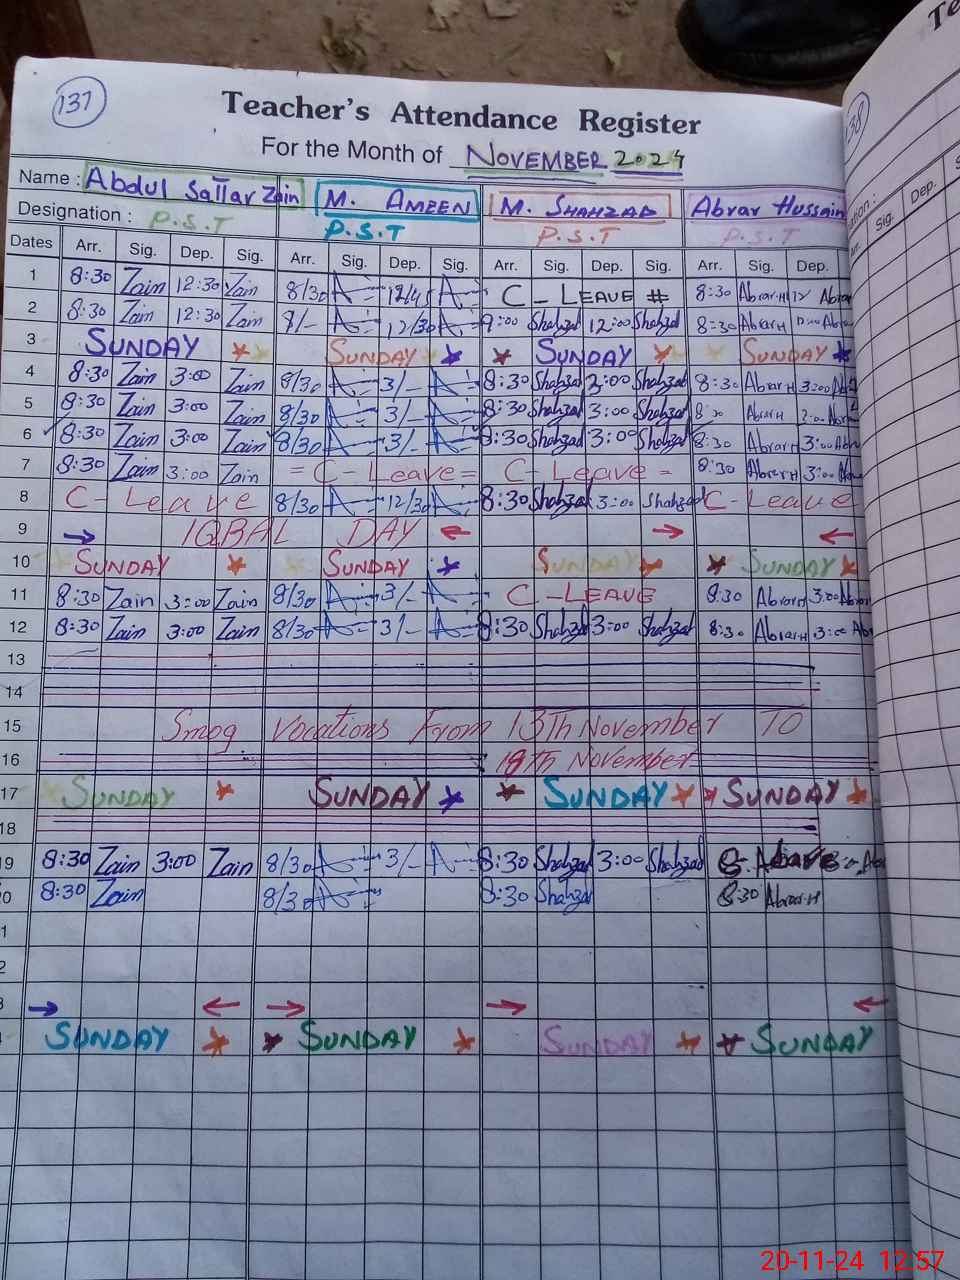 137
Teacher's Attendance Register
For the Month of NOVEMBER 2024
Name : Abdul Sattar Zain M. AMEEN M. SHAHZAD Abrar Hussain
Designation : P.S.T P.S.T P.S.T P.S.T
Dates Arr. Sig. Dep. Sig. Arr. Sig. Dep. Sig. Arr. Sig. Dep. Sig. Arr. Sig. Dep.
1 8:30 Zain 12:30 Zain 8/30 12/45 C - LEAVE # 8:30 Abrar.H
2 8:30 Zain 12:30 Zain 8/- 12/30 9:00 Shahzad 12:00 Shahzad 8:30 Abrar H
3 SUNDAY SUNDAY SUNDAY SUNDAY
4 8:30 Zain 3:00 Zain 8/30 3/- 8:30 Shahzad 3:00 Shahzad 8:30 Abrar H 3:00
5 8:30 Zain 3:00 Zain 8/30 3/- 8:30 Shahzad 3:00 Shahzad 8:30 Abrar H
6 8:30 Zain 3:00 Zain 8/30 3/- 8:30 Shahzad 3:00 Shahzad 8:30 Abrar H 3:00
7 8:30 Zain 3:00 Zain = C - Leave = C - Leave - 8:30 Abrar H 3:00
8 C - Leave 8/30 12/30 8:30 Shahzad 3:00 Shahzad C - Leave
9 IQBAL DAY
10 SUNDAY SUNDAY SUNDAY SUNDAY
11 8:30 Zain 3:00 Zain 8/30 3/- C - LEAVE 8:30 Abrar H 3:00
12 8:30 Zain 3:00 Zain 8/30 3/- 8:30 Shahzad 3:00 Shahzad 8:30 Abrar H 3:00
13
14
15 Smog Vocations From 13Th November TO
16 18Th November
17 SUNDAY SUNDAY SUNDAY SUNDAY
18
19 8:30 Zain 3:00 Zain 8/30 3/- 8:30 Shahzad 3:00 Shahzad
20 8:30 Zain 8/30 8:30 Shahzad 8:30 Abrar.H
SUNDAY SUNDAY SUNDAY SUNDAY
138
Te
Sig. Dep.
20-11-24 12:57